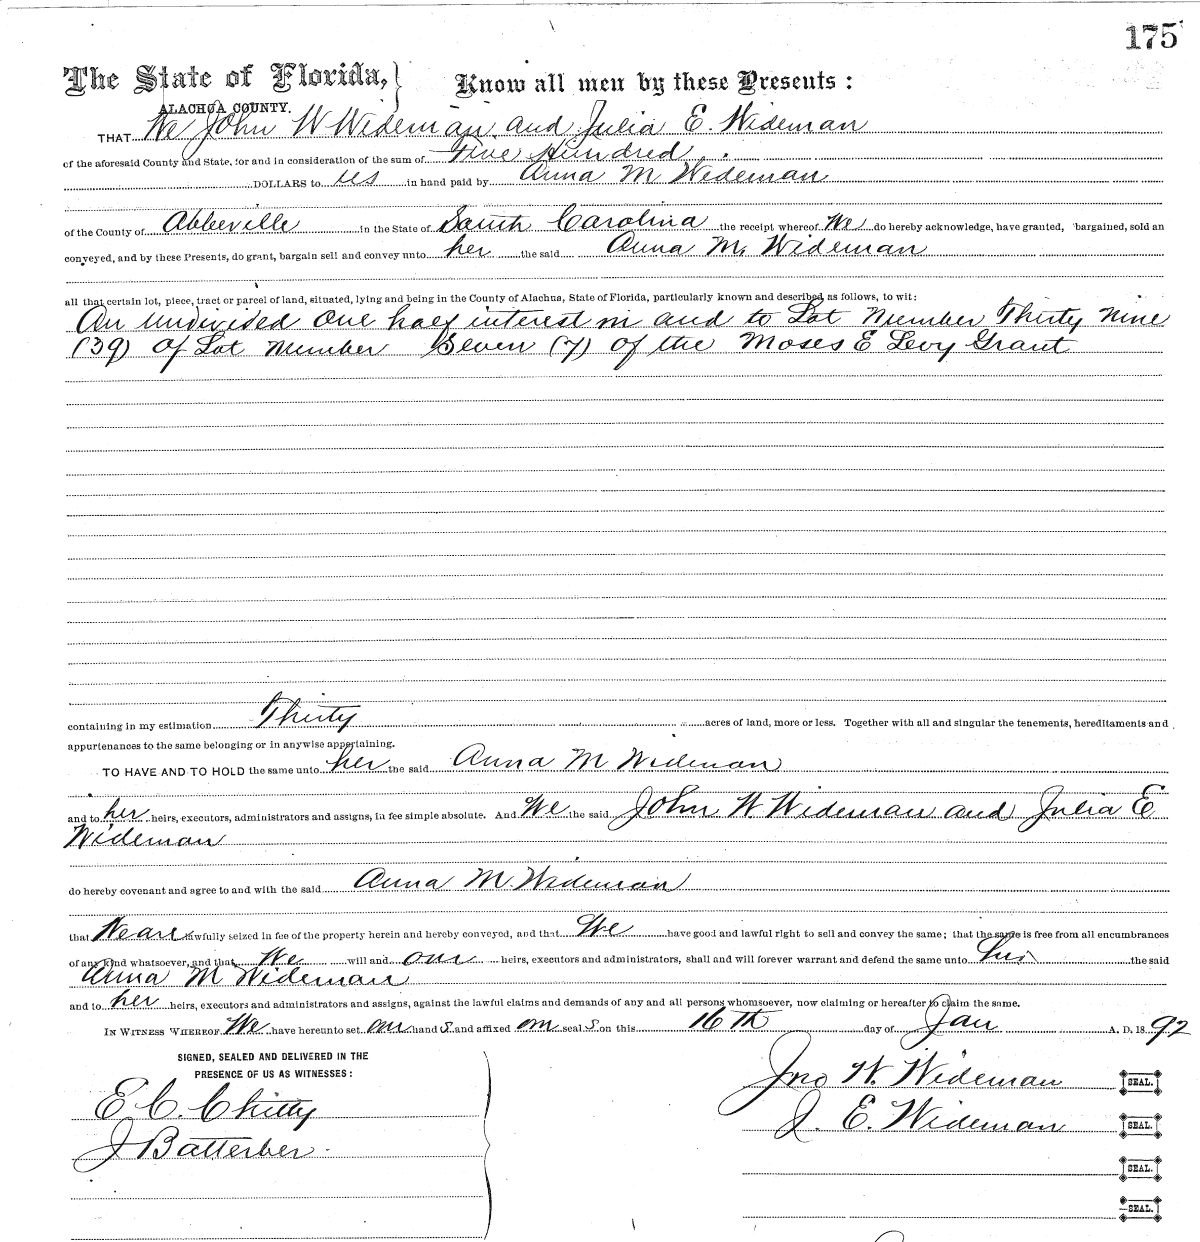 175
The State of Florida, } Know all men by these Presents :
ALACHUA COUNTY.
THAT We John W Wideman and Julia E. Wideman
of the aforesaid County and State, for and in consideration of the sum of Five Hundred
DOLLARS to us in hand paid by Anna M Wideman
of the County of Abbeville in the State of South Carolina the receipt whereof We do hereby acknowledge, have granted, bargained, sold an
conveyed, and by these Presents, do grant, bargain sell and convey unto her the said Anna M. Wideman
all that certain lot, piece, tract or parcel of land, situated, lying and being in the County of Alachua, State of Florida, particularly known and described, as follows, to wit:
An undivided one half interest in and to Lot Number Thirty nine
(39) of Lot Number Seven (7) of the Moses E Levy Grant
containing in my estimation Thirty acres of land, more or less. Together with all and singular the tenements, hereditaments and
appurtenances to the same belonging or in anywise appertaining.
TO HAVE AND TO HOLD the same unto her the said Anna M Wideman
and to her heirs, executors, administrators and assigns, in fee simple absolute. And We the said John W. Wideman and Julia E
Wideman
do hereby covenant and agree to and with the said Anna M. Wideman
that We are lawfully seized in fee of the property herein and hereby conveyed, and that We have good and lawful right to sell and convey the same; that the same is free from all encumbrances
of any kind whatsoever, and that We will and our heirs, executors and administrators, shall and will forever warrant and defend the same unto the said
Anna M Wideman
and to her heirs, executors and administrators and assigns, against the lawful claims and demands of any and all persons whomsoever, now claiming or hereafter to claim the same.
IN WITNESS WHEREOF, We have hereunto set our hand s and affixed our seal s on this 16th day of Jan A. D. 18 92
SIGNED, SEALED AND DELIVERED IN THE
PRESENCE OF US AS WITNESSES :
Jno W. Wideman SEAL.
E. C. Chitty
J. E. Wideman SEAL.
J Batterber
SEAL.
SEAL.